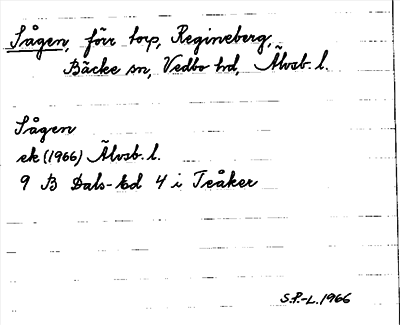 Sågen, förr torp, Regineberg,
Bäcke sn, Vedbo hd, Älvsb. l.
Sågen
ek (1966) Älvsb. l.
9 B Dals-Ed 4 i Teåker
S.P.-L. 1966